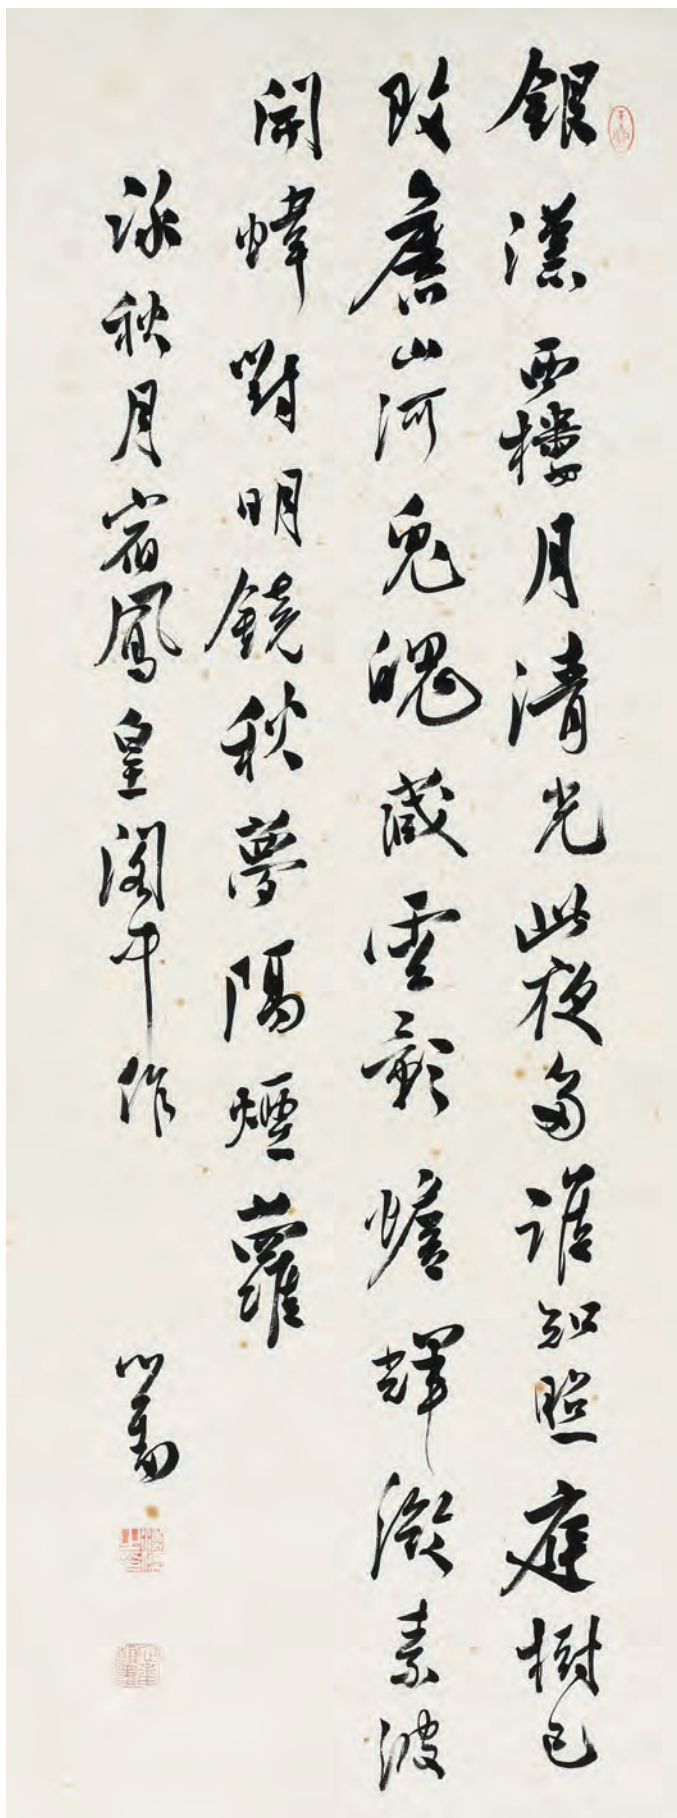 銀漢西樓月清光此夜多誰知照庭樹已
改舊山河兔魄藏雲影蟾輝瀲素波
開幃對明鏡秋夢隔煙蘿
詠秋月宿鳳皇閣中作 心畬